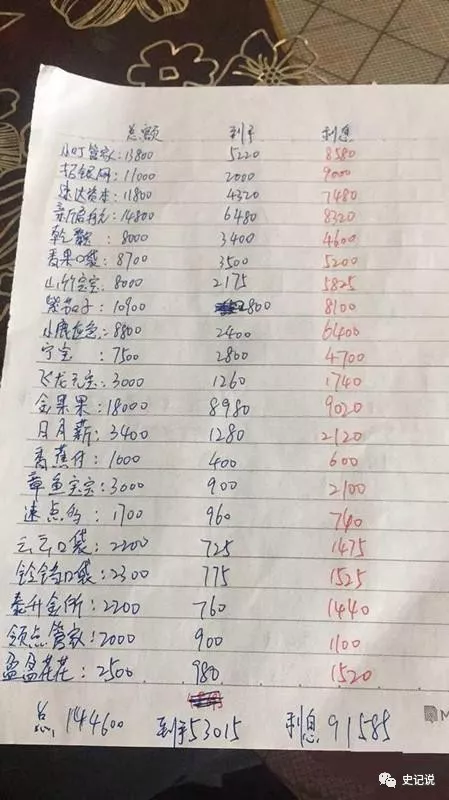 总额 到手 利息
小叮管家:13800 5220 8580
拓银网:11000 2000 9000
速达资本:11800 4320 7480
:14800 6480 8320
8000 3400 4600
香果口袋:8700 3500 5200
山竹宝宝:8000 2175 5825
紫茄子:10900 2800 8100
8800 2400 6400
宁宝:7500 2800 4700
飞龙元宝:3000 1260 1740
金果果:18000 8980 9020
日月薪:3400 1280 2120
香蕉仔:1000 400 600
章鱼宝宝:3000 900 2100
速点多:1700 960 740
云云口袋:2200 725 1475
铃铛口袋:2300 775 1525
泰升金所:2200 760 1440
领点管家:2000 900 1100
盈盈花花:2500 980 1520
总 144600 到手53015 利息91585
史记说